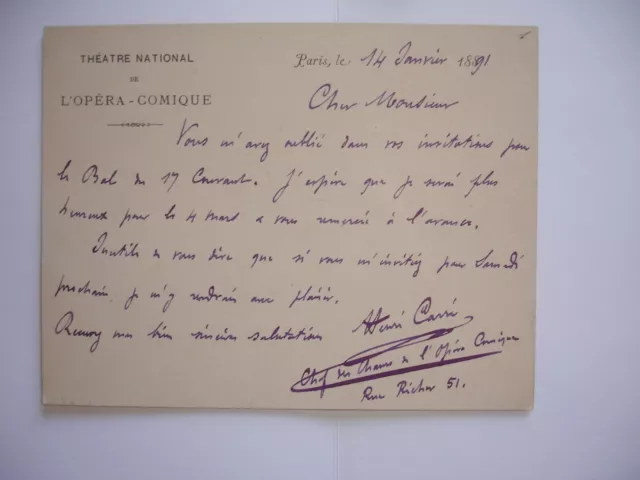 THÉATRE NATIONAL
DE
L'OPÉRA-COMIQUE
Paris, le 14 Janvier 1891
Cher Monsieur
Vous m'avez oublié dans vos invitations pour
le Bal du 17 Courant. J'espère que je serai plus
heureux pour le 4 mars & vous remercie à l'avance.
Inutile de vous dire que si vous m'invitez pour Samedi
prochain, je m'y rendrais avec plaisir.
Recevez mes bien sincères salutations
Henri Carré
Chef des Chœurs de l'Opéra Comique
Rue Richer 51.